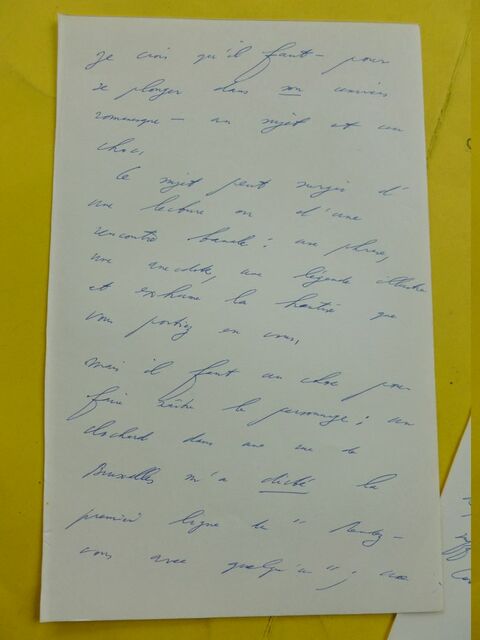 je crois qu'il faut - pour
se plonger dans son univers
romanesque - un sujet et un
choc.
Le sujet peut surgir d'
une lecture ou d'une
rencontre banale : une phrase,
une anecdote, une légende illustre
et exhume la hantise que
vous portiez en vous,
mais il faut un choc pour
faire naître le personnage ; un
clochard dans une rue de
Bruxelles m'a dicté la
première ligne du " Rendez-
vous avec quelqu'un " ; une